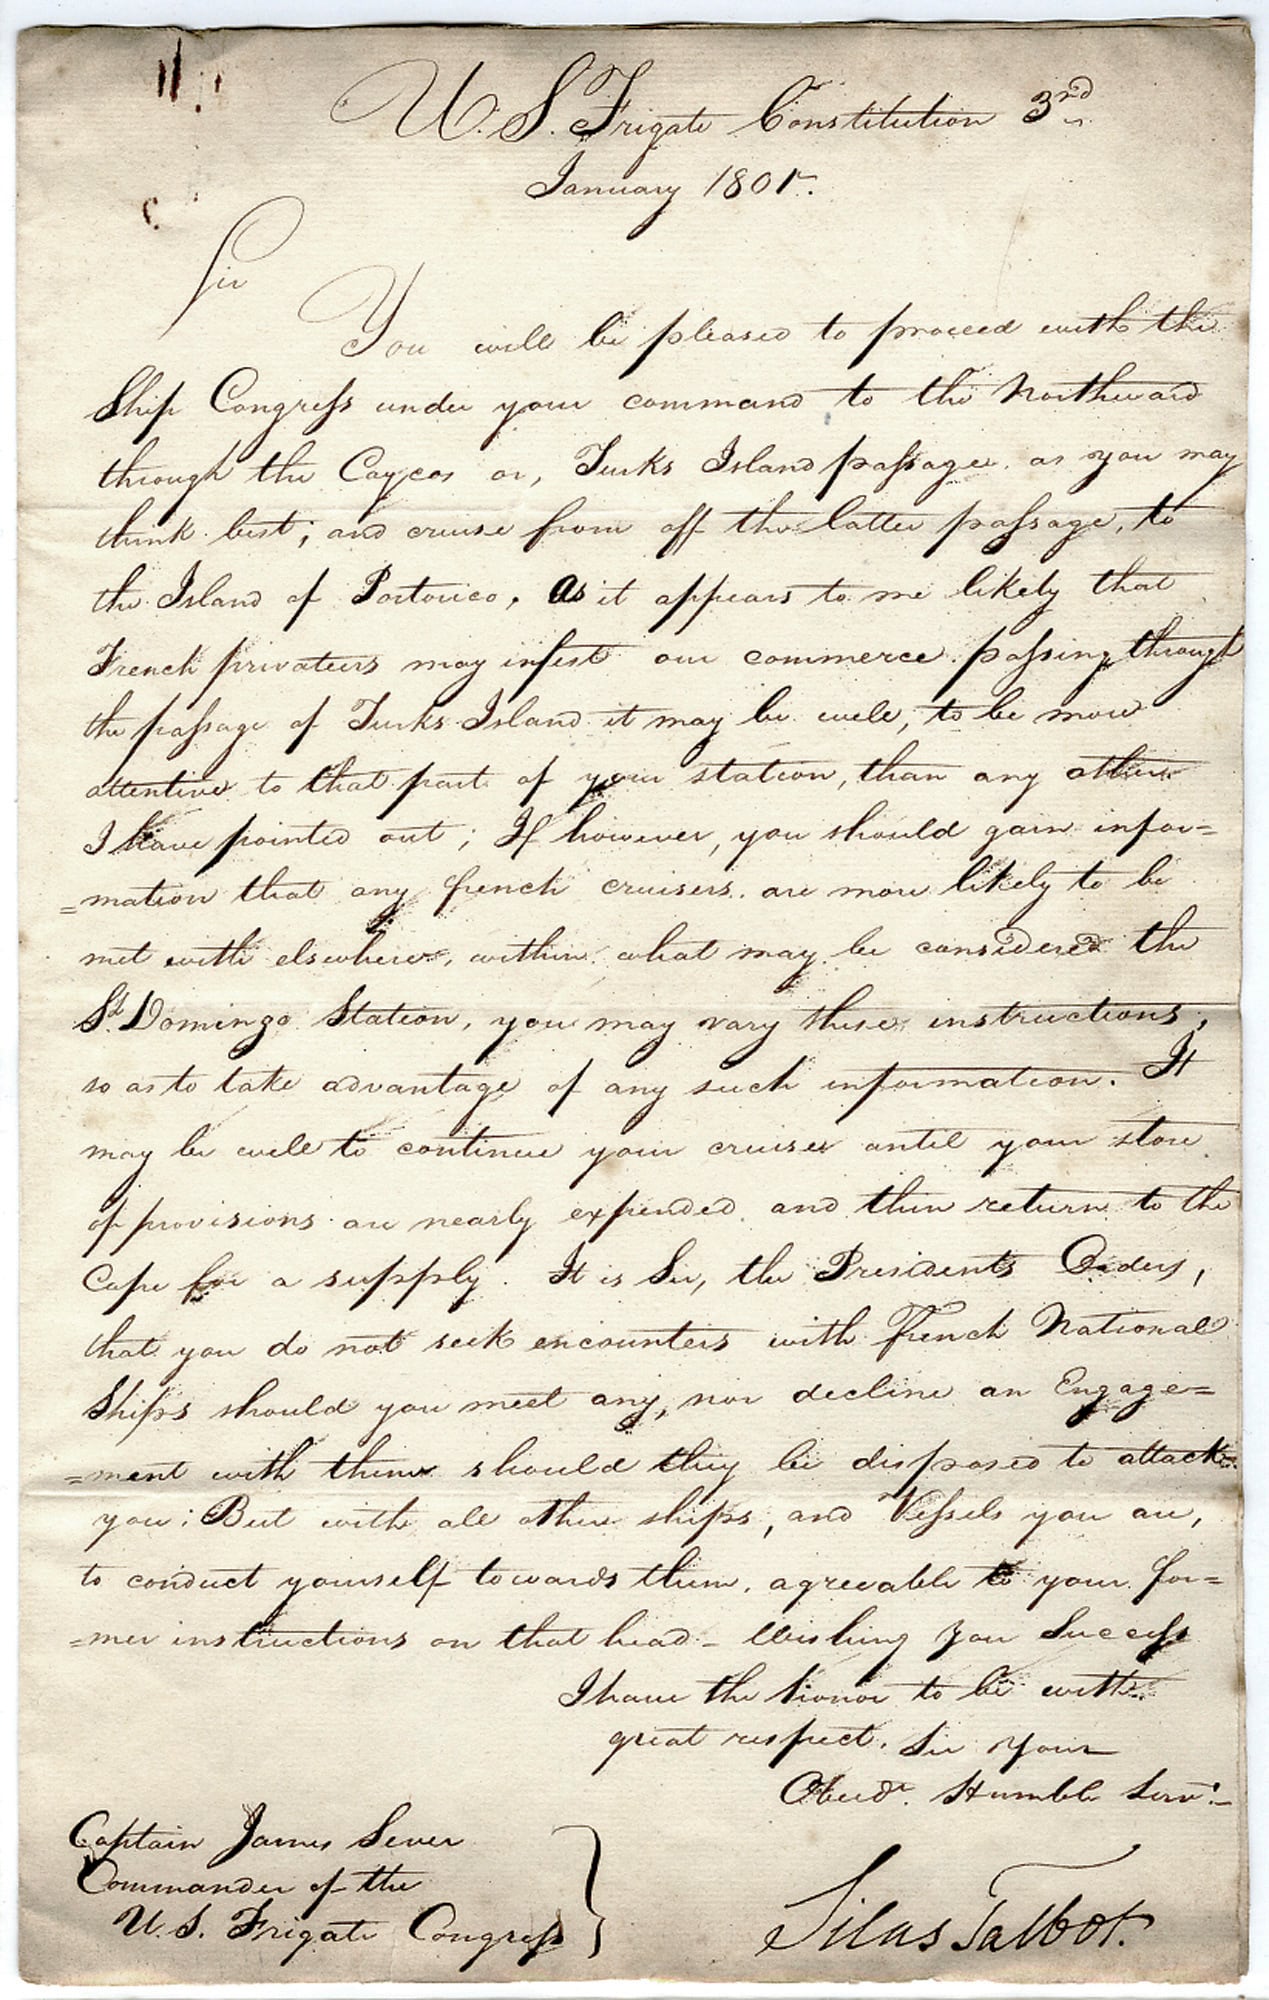 U. S. Frigate Constitution 3rd
January 1801.
Sir
You will be pleased to proceed with the
Ship Congress under your command to the Northward
through the Caycos or, Turks Island passage as you may
think best; and cruise from off the latter passage, to
the Island of Portorico, as it appears to me likely that
French privateers may infest our commerce passing through
the passage of Turks Island it may be well, to be more
attentive to that part of your station, than any others
I have pointed out; If however, you should gain infor=
=mation that any french cruisers are more likely to be
met with elsewhere, within what may be considered the
St. Domingo Station, you may vary these instructions,
so as to take advantage of any such information. It
may be well to continue your cruise until your store
of provisions are nearly expended and then return to the
Cape for a supply. It is Sir, the Presidents Orders,
that you do not seek encounters with French National
Ships should you meet any, nor decline an Engage=
=ment with them should they be disposed to attack
you; But with all other ships, and Vessels you are,
to conduct yourself towards them, agreeable to your for=
=mer instructions on that head - Wishing you Success
I have the honor to be with
great respect. Sir Your
Obedt. Humble Servt.
Captain James Sever
Commander of the
U. S. Frigate Congress
Silas Talbot.